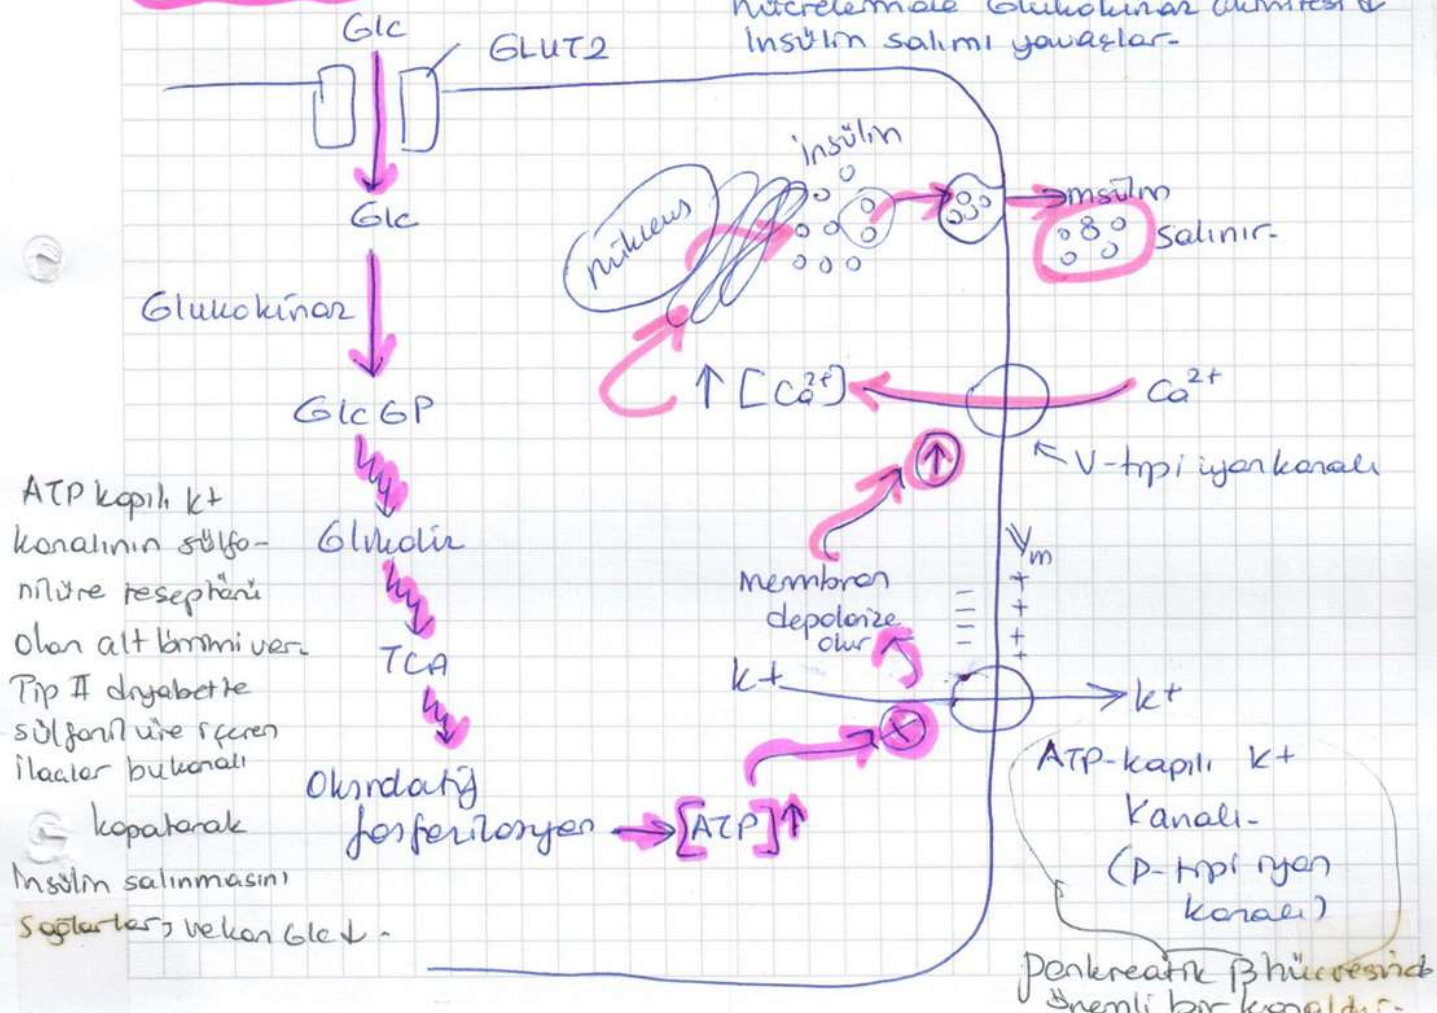 Glukokinaz
İnsülin salımı yavaşlar-
Glc
GLUT2
Glc
Glukokinaz
Glc6P
Glikoliz
TCA
Oksidatif
fosforilasyon
[ATP]↑
nükleus
insülin
insülin
salınır-
↑ [Ca2+]
Ca2+
V-tipi iyon kanalı
Vm
membran
depolarize
olur
K+
K+
ATP-kapılı K+
Kanalı-
(P-tipi iyon
kanalı)
pankreatik β hücresinde
önemli bir kanaldır-
ATP kapılı K+
kanalının sülfo-
nilüre reseptörü
olan alt birimi var.
Tip II diyabette
sülfonilüre içeren
ilaçlar bu kanalı
kapatarak
İnsülin salınmasını
sağlarlar, ve kan Glc ↓ -